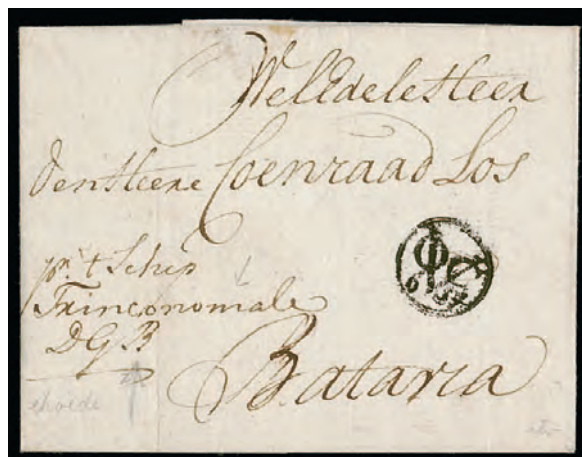 WelEdele Heer
den Heere Coenraad Los
pr. t Schip
Trinconomale
D G B
Batavia